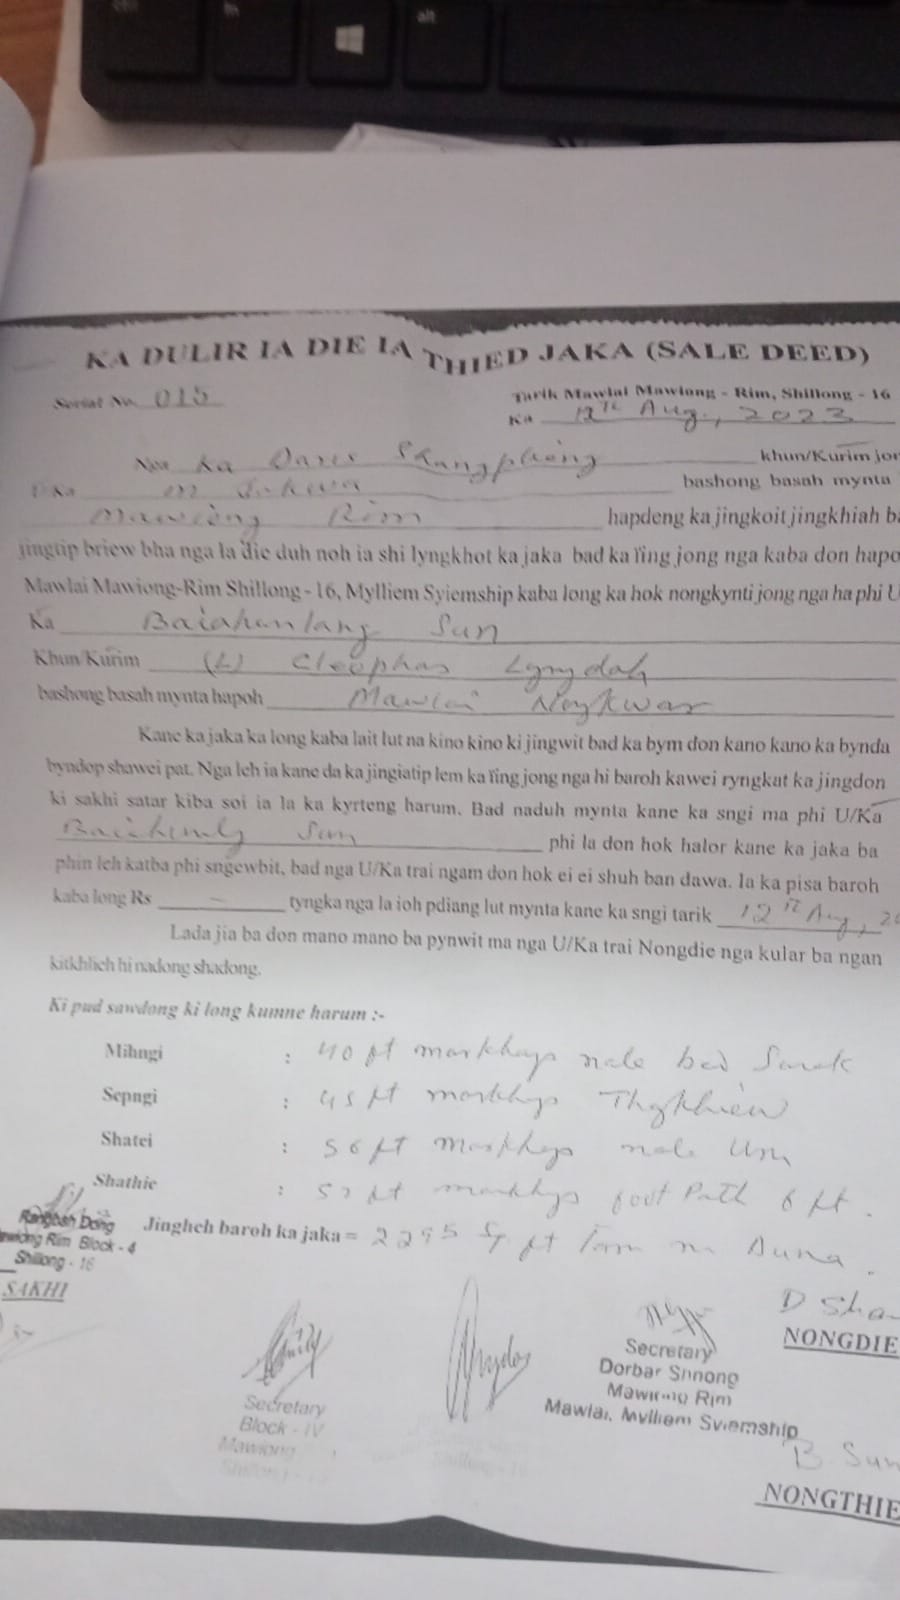 alt
KA DULIR IA DIE IA THIED JAKA (SALE DEED)
Serial No. 015
Tarik Mawlai Mawiong - Rim, Shillong - 16
Ka 12th Aug., 2023
Nga Ka Doris Shangpliang khun/Kurim jon
U/Ka bashong basah mynta
Mawiong Rim hapdeng ka jingkoit jingkhiah b
jingtip briew bha nga la die duh noh ia shi lyngkhot ka jaka bad ka ïing jong nga kaba don hapo
Mawlai Mawiong-Rim Shillong - 16, Mylliem Syiemship kaba long ka hok nongkynti jong nga ha phi U
Ka Baiahunlang Sun
Khun/Kurim (L) Cleophas Lyngdoh
bashong basah mynta hapoh Mawlai Nongkwar
Kane ka jaka ka long kaba lait lut na kino kino ki jingwit bad ka bym don kano kano ka bynda
byndop shawei pat. Nga leh ia kane da ka jingiatip lem ka ïing jong nga hi baroh kawei ryngkat ka jingdon
ki sakhi satar kiba soi ia la ka kyrteng harum. Bad naduh mynta kane ka sngi ma phi U/Ka
Sun phi la don hok halor kane ka jaka ba
phin leh katba phi sngewbit, bad nga U/Ka trai ngam don hok ei ei shuh ban dawa. Ia ka pisa baroh
kaba long Rs — tyngka nga la ioh pdiang lut mynta kane ka sngi tarik 12th Aug, 20
Lada jia ba don mano mano ba pynwit ma nga U/Ka trai Nongdie nga kular ba ngan
kitkhlieh hi nadong shadong.
Ki pud sawdong ki long kumne harum :-
Mihngi : 40 ft markhap nala bad Surok
Sepngi : 45 ft markhap Thangkhiew
Shatei : 56 ft markhap nala Um
Shathie : 52 ft markhap foot Path 6 ft.
Jingheh baroh ka jaka = 2295 Sq ft
Rangbah Dong
Mawiong Rim Block - 4
Shillong - 16
SAKHI
D Sha
NONGDIE
Secretary
Dorbar Shnong
Mawiong Rim
Mawlai, Mylliem Syiemship
Secretary
Block - IV
Mawiong
Shillong
B. Sun
NONGTHIE